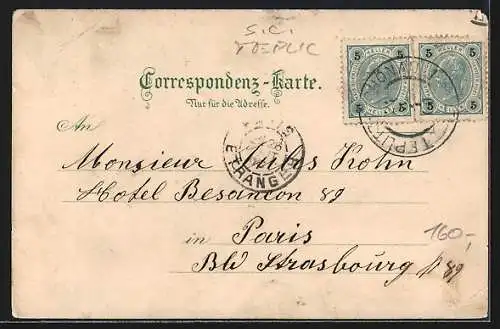 S.C.
TEPLIC
5 HELLER 5
5 HELLER 5
Correspondenz-Karte.
Nur für die Adresse.
An
ETRANGER
Monsieur Kohn
Hotel Besançon 89
in Paris
160,-
Bld Strasbourg 89